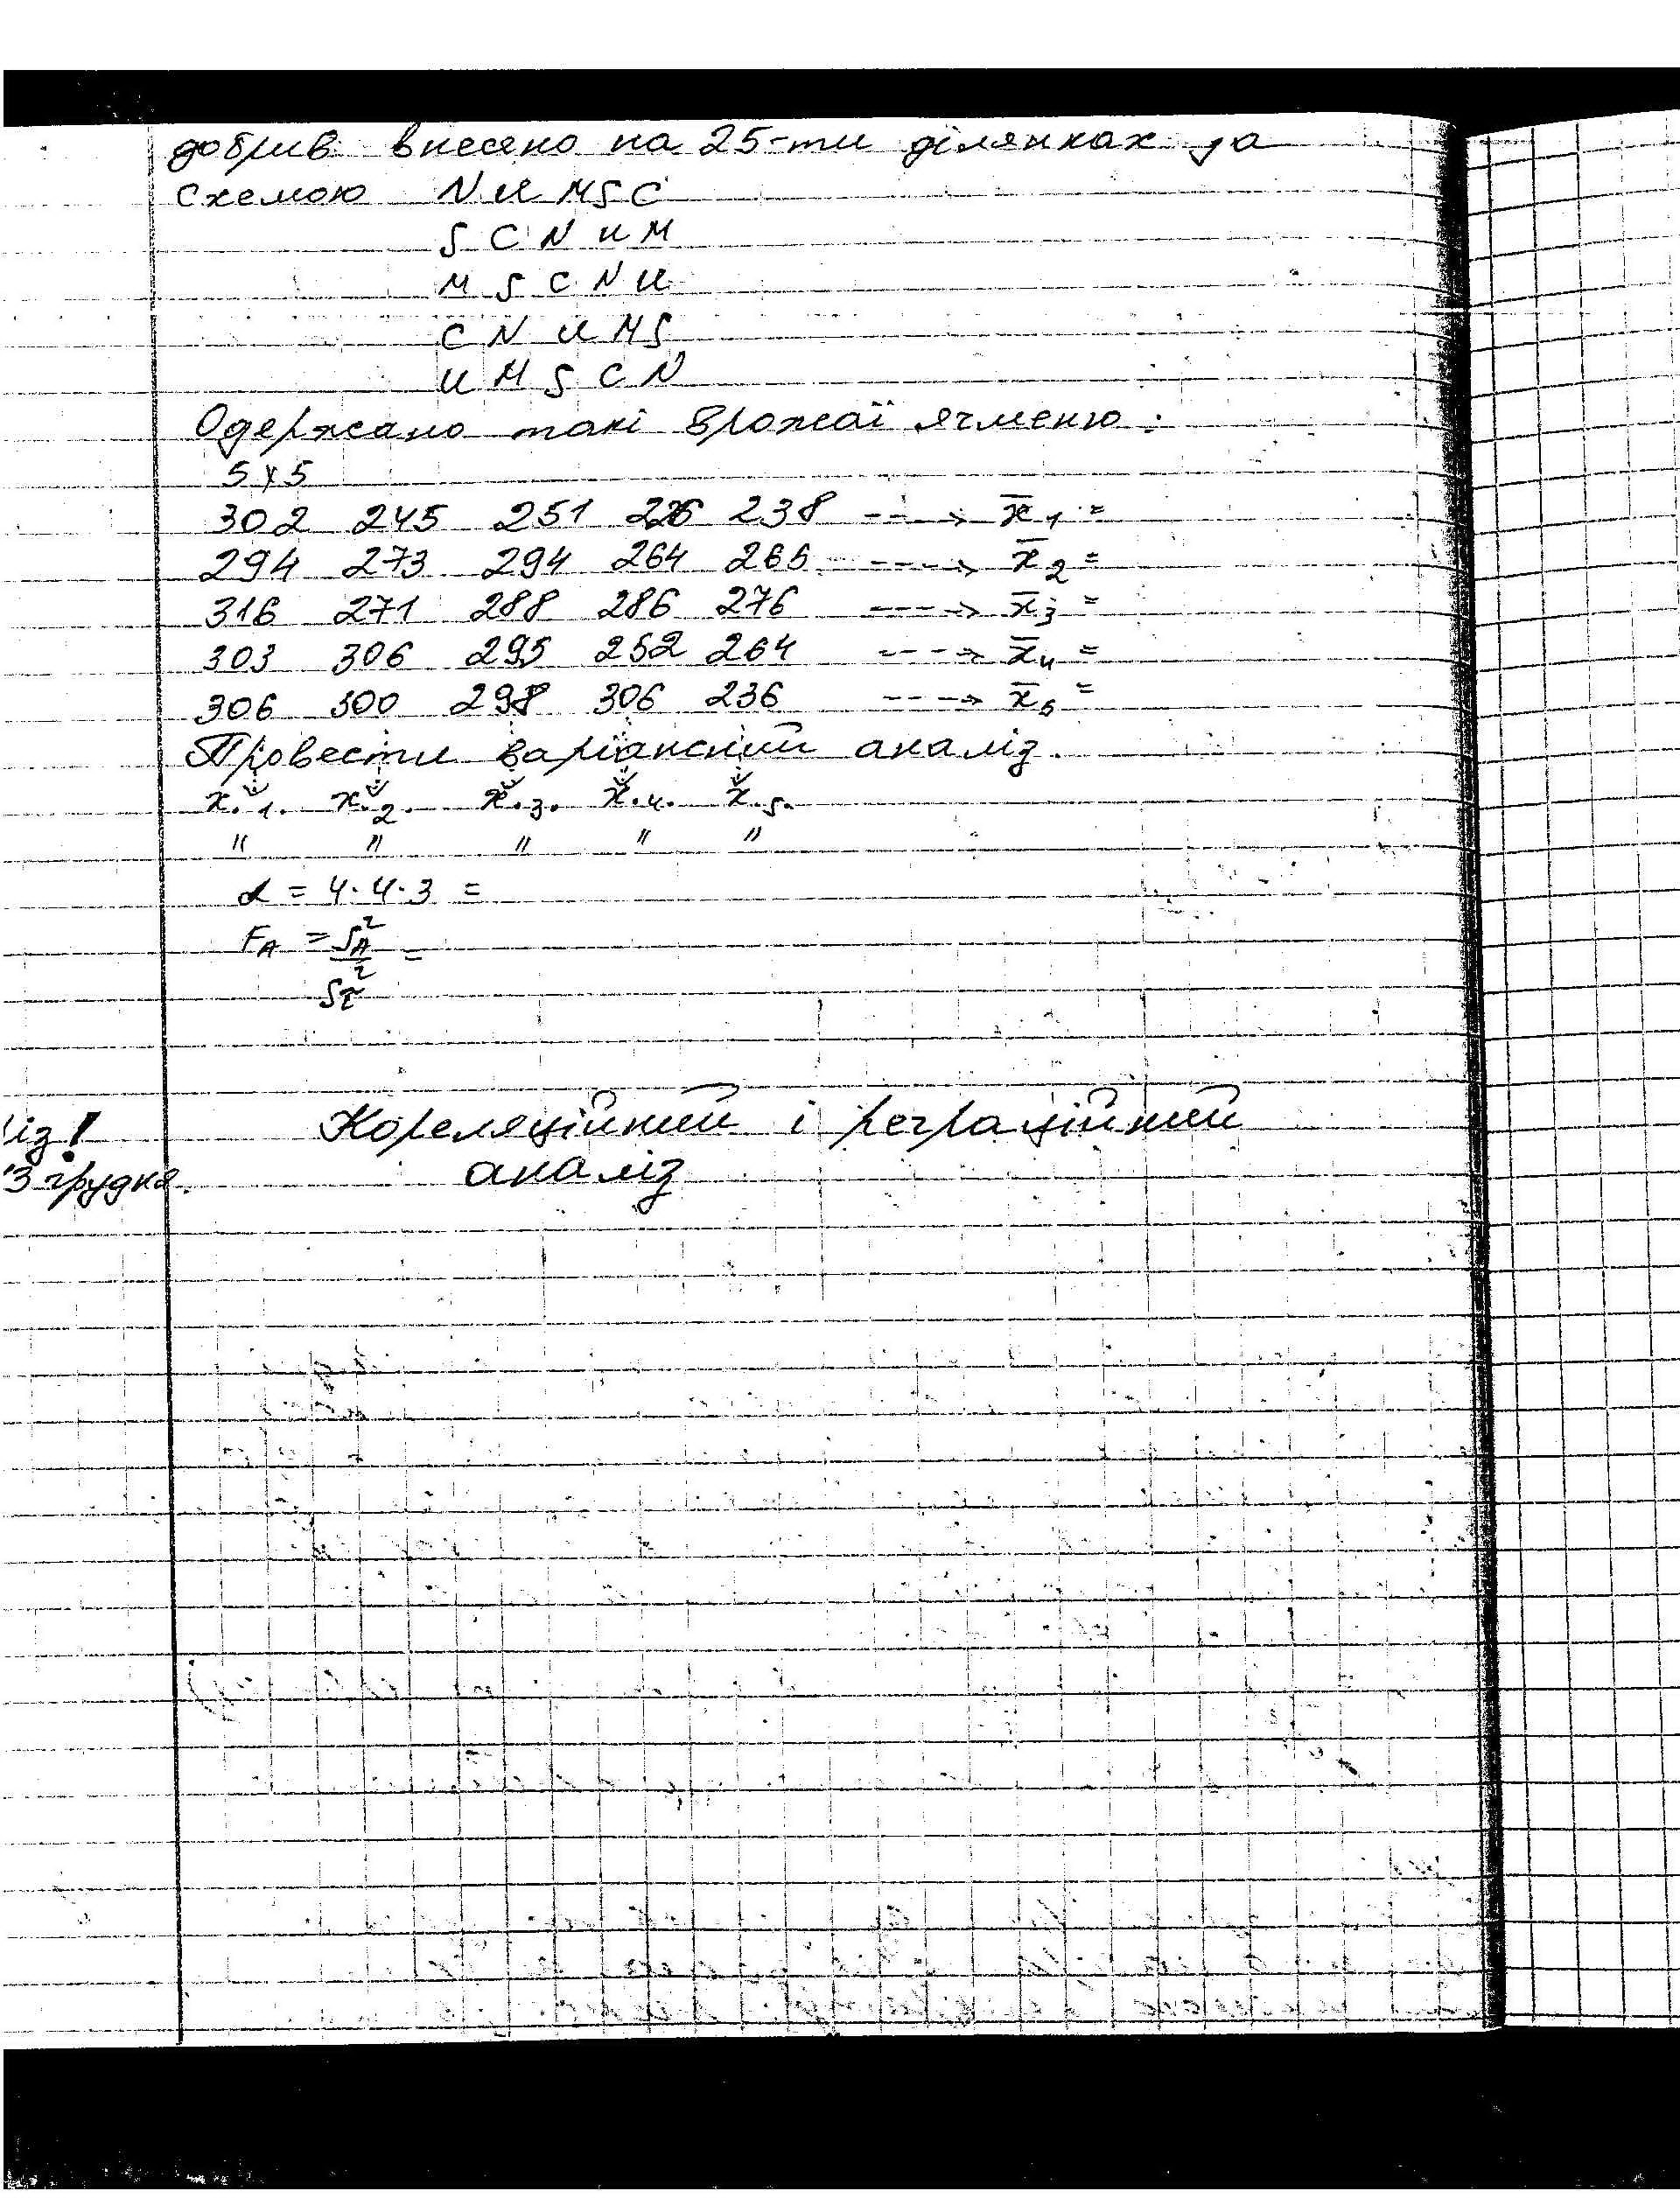 добрив внесено на 25-ти ділянках за
схемою N U M S C
S C N U M
M S C N U
C N U M S
U M S C N
Одержано такі врожаї ячменю:
5x5
302 245 251 226 238 ----> x̄₁ =
294 273 294 264 265 ----> x̄₂ =
316 271 288 286 276 ---> x̄₃ =
303 306 295 252 264 ---> x̄₄ =
306 300 298 306 236 ----> x̄₅ =
Провести варіансний аналіз.
x.₁. x.₂. x.₃. x.₄. x.₅.
" " " " "
α = 4·4·3 =
F_A = S²_A / S²_Z =
із!
Кореляційний і реграційний
3 грудня.
аналіз